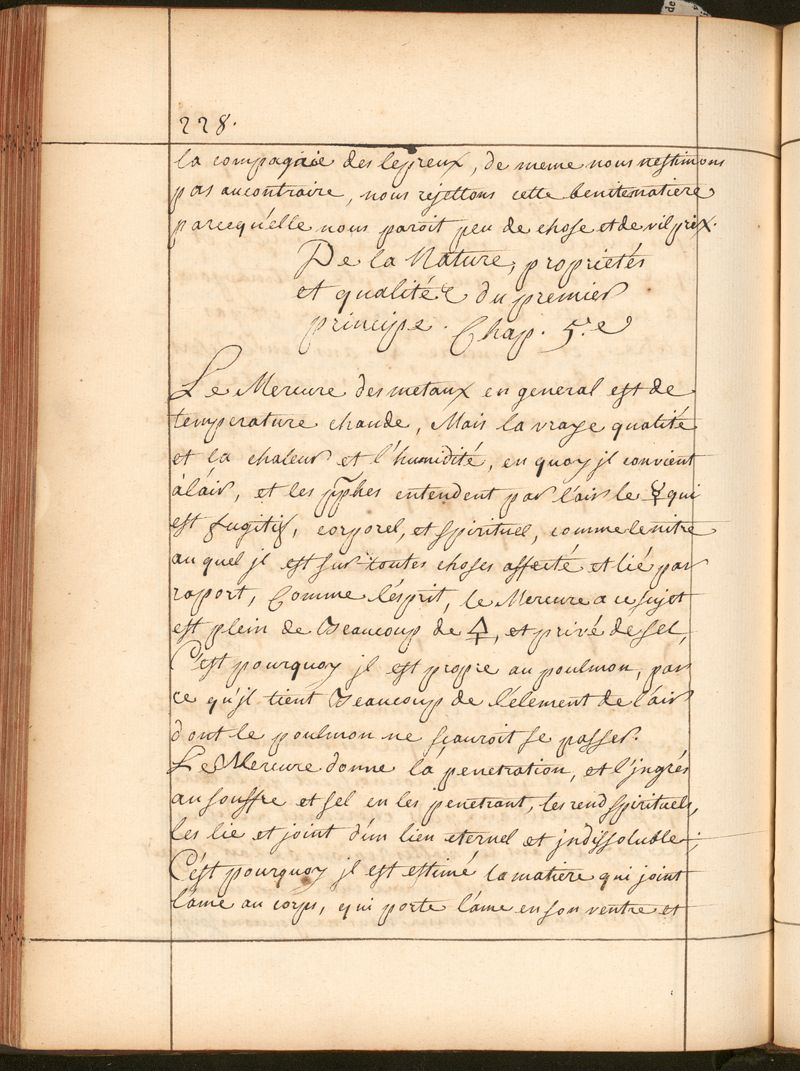 228.
la compagnie des lepreux, de meme nous nestimons
pas aucontraire, nous rejettons cette benitematiere
parcequ'elle nous paroit peu de chose et de vil prix.
De la Nature, proprietés
et qualitéz du premier
principe. Chap. 5.e
Le Mercure des metaux en general est de
temperature chaude, Mais la vraye qualité
et la chaleur et l'humidité, en quoy jl convient
alair, et les pphes entendent par l'air le ☿ qui
est fugitif, corporel, et spirituel, comme le nitre
au quel jl est sur toutes choses affecté et lié par
raport, Comme l'ésprit, le Mercure a ce sujet
est plein de Beaucoup de 🜍, et privé de sel,
C'est pourquoy jl est propre au poulmon, par
ce qu'jl tient Beaucoup de l'element de l'air
dont le poulmon ne scauroit se passer.
Le Mercure donne la penetration, et l'jngrés
au souffre et sel en les penetrant, les rend spirituels,
les lie et joint d'un lien eternel et jndissoluble;
C'est pourquoy jl est estimé la matiere qui joint
l'ame au corps, qui porte l'ame en son ventre et